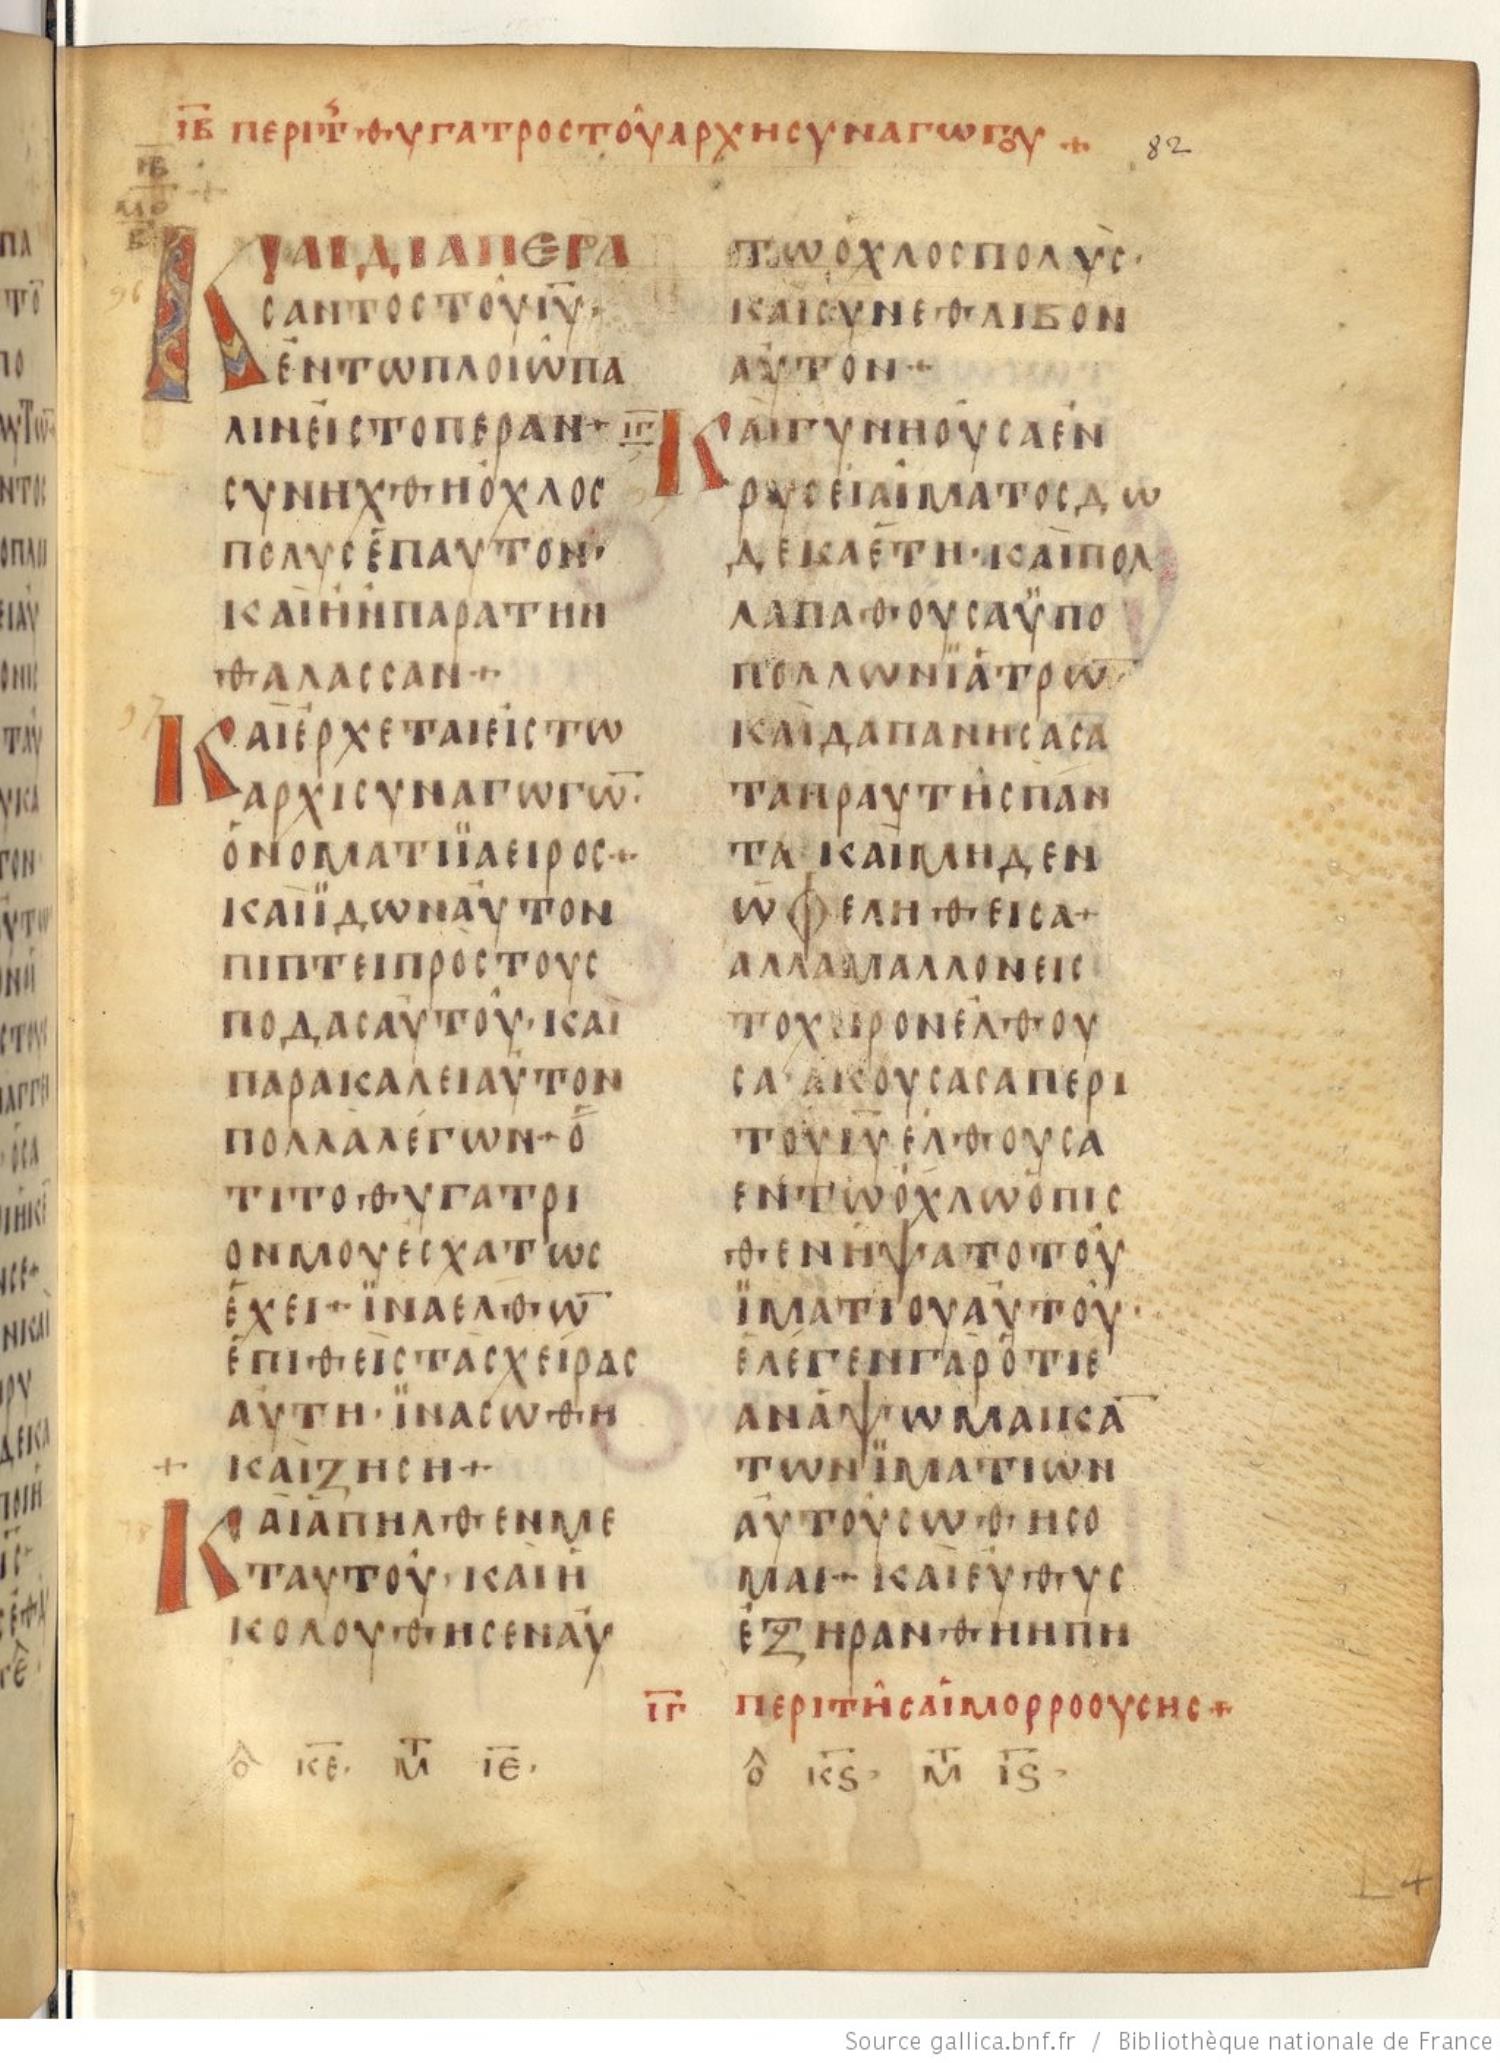 ΙΒ ΠΕΡΙ Τ ΘΥΓΑΤΡΟΣ ΤΟΥ ΑΡΧΗΣΥΝΑΓΩΓΟΥ +
82
ΙΒ
ΚΑΙ ΔΙΑΠΕΡΑ
ϹΑΝΤΟϹΤΟΥΙΥ·
ΕΝΤΩΠΛΟΙΩΠΑ
ΛΙΝΕΙϹΤΟΠΕΡΑΝ+
ϹΥΝΗΧΘΗΟΧΛΟϹ
ΠΟΛΥϹΕΠΑΥΤΟΝ·
ΚΑΙΗΝΠΑΡΑΤΗΝ
ΘΑΛΑϹϹΑΝ+
ΚΑΙΕΡΧΕΤΑΙΕΙϹΤΩ
ΑΡΧΙϹΥΝΑΓΩΓΩ̅·
ΟΝΟΜΑΤΙΪΑΕΙΡΟϹ+
ΚΑΙΪΔΩΝΑΥΤΟΝ
ΠΙΠΤΕΙΠΡΟϹΤΟΥϹ
ΠΟΔΑϹΑΥΤΟΥ·ΚΑΙ
ΠΑΡΑΚΑΛΕΙΑΥΤΟΝ
ΠΟΛΛΑΛΕΓΩΝ+Ο
ΤΙΤΟΘΥΓΑΤΡΙ
ΟΝΜΟΥΕϹΧΑΤΩϹ
ΕΧΕΙ+ΪΝΑΕΛΘΩ̅
ΕΠΙΘΕΙϹΤΑϹΧΕΙΡΑϹ
ΑΥΤΗ·ΪΝΑϹΩΘΗ
+ ΚΑΙΖΗϹΗ+
ΚΑΙΑΠΗΛΘΕΝΜΕ
ΤΑΥΤΟΥ·ΚΑΙΗ
ΚΟΛΟΥΘΗϹΕΝΑΥ
Ο ΚΕ· Μ ΙΕ·
ΤΩΟΧΛΟϹΠΟΛΥϹ·
ΚΑΙϹΥΝΕΘΛΙΒΟΝ
ΑΥΤΟΝ+
ΙΓ ΚΑΙΓΥΝΗΟΥϹΑΕΝ
ΡΥϹΕΙΑΙΜΑΤΟϹΔΩ
ΔΕΚΑΕΤΗ·ΚΑΙΠΟΛ
ΛΑΠΑΘΟΥϹΑΫΠΟ
ΠΟΛΛΩΝΪΑΤΡΩ̅
ΚΑΙΔΑΠΑΝΗϹΑϹΑ
ΤΑΠΡΑΥΤΗϹΠΑΝ
ΤΑ ΚΑΙΜΗΔΕΝ
ΩΦΕΛΗΘΕΙϹΑ+
ΑΛΛΑΜΑΛΛΟΝΕΙϹ
ΤΟΧΕΙΡΟΝΕΛΘΟΥ
ϹΑ·ΑΚΟΥϹΑϹΑΠΕΡΙ
ΤΟΥΙΥΕΛΘΟΥϹΑ
ΕΝΤΩΟΧΛΩΟΠΙϹ
ΘΕΝΗΨΑΤΟΤΟΥ
ΪΜΑΤΙΟΥΑΥΤΟΥ·
ΕΛΕΓΕΝΓΑΡΟΤΙΕ
ΑΝΑΨΩΜΑΙΚΑ̅
ΤΩΝΪΜΑΤΙΩΝ
ΑΥΤΟΥϹΩΘΗϹΟ
ΜΑΙ+ΚΑΙΕΥΘΥϹ
ΕΞΗΡΑΝΘΗΗΠΗ
ΙΓ ΠΕΡΙΤΗϹΑΙΜΟΡΡΟΟΥϹΗϹ+
Ο ΚϚ· Μ ΙϚ·
Source gallica.bnf.fr / Bibliothèque nationale de France